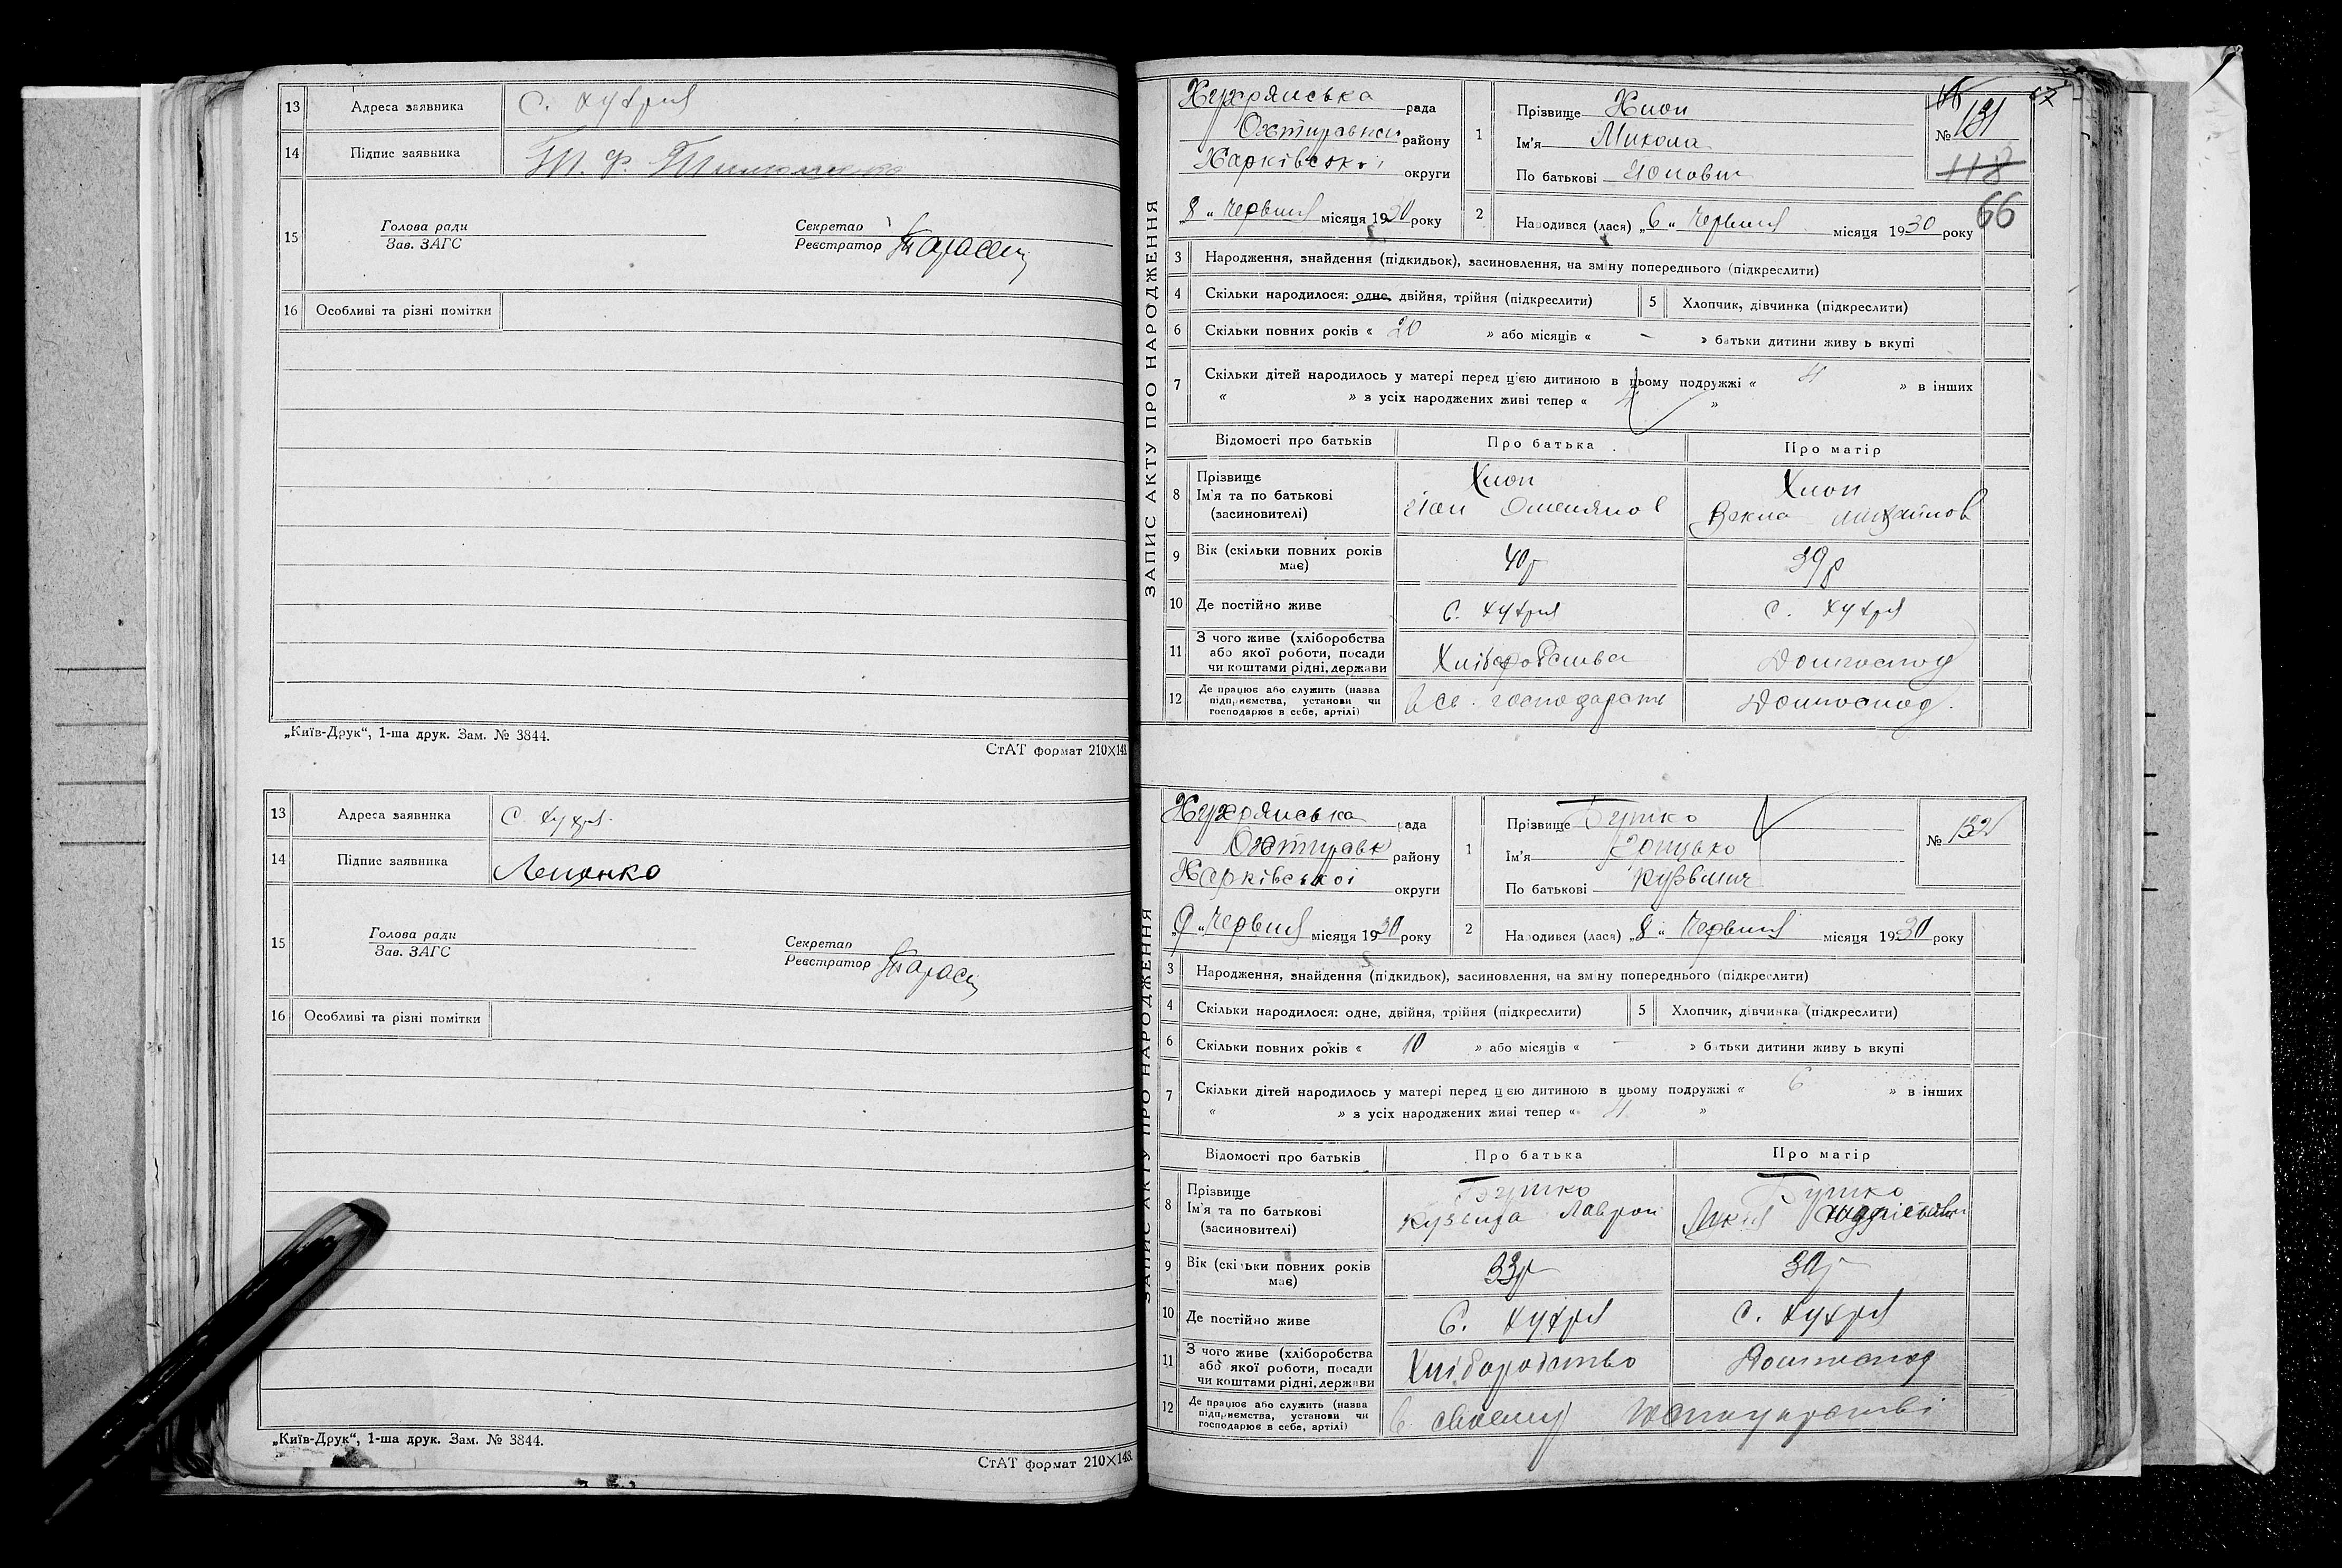 13 Адреса заявника С. Хухря
14 Підпис заявника
15 Голова ради
Зав. ЗАГС
Секретар
Реєстратор
16 Особливі та різні помітки
„Київ-Друк“, 1-ша друк. Зам. № 3844.
СтАТ формат 210×148.
13 Адреса заявника С. Хухря
14 Підпис заявника
15 Голова ради
Зав. ЗАГС
Секретар
Реєстратор
16 Особливі та різні помітки
„Київ-Друк“, 1-ша друк. Зам. № 3844.
СтАТ формат 210×148.
67
ЗАПИС АКТУ ПРО НАРОДЖЕННЯ
Хухрянська рада
району
Харківської округи
„8“ Червня місяця 1930 року
1 Прізвище
Ім'я Микола
По батькові
№ 131
118
66
2 Народився (лася) „6“ Червня місяця 1930 року
3 Народження, знайдення (підкидьок), засиновлення, на зміну попереднього (підкреслити)
4 Скільки народилося: одне, двійня, трійня (підкреслити) 5 Хлопчик, дівчинка (підкреслити)
6 Скільки повних років « 20 » або місяців « – » батьки дитини живуть вкупі
7 Скільки дітей народилось у матері перед цією дитиною в цьому подружжі « 4 » в інших
« » з усіх народжених живі тепер « »
Відомості про батьків Про батька Про матір
8 Прізвище
Ім'я та по батькові
(засиновителі)
9 Вік (скільки повних років має) 40р 39р
10 Де постійно живе С. Хухря С. Хухря
11 З чого живе (хліборобства
або якої роботи, посади
чи коштами рідні, держави
Домгоспод
12 Де працює або служить (назва
підприємства, установи чи
господарює в себе, артілі)
Домгоспод.
ЗАПИС АКТУ ПРО НАРОДЖЕННЯ
Хухрянська рада
Охтирськ району
Харківської округи
„9“ Червня місяця 1930 року
1 Прізвище
Ім'я Грицько
По батькові Кузьмич
№ 132
2 Народився (лася) „8“ Червня місяця 1930 року
3 Народження, знайдення (підкидьок), засиновлення, на зміну попереднього (підкреслити)
4 Скільки народилося: одне, двійня, трійня (підкреслити) 5 Хлопчик, дівчинка (підкреслити)
6 Скільки повних років « 10 » або місяців « – » батьки дитини живуть вкупі
7 Скільки дітей народилось у матері перед цією дитиною в цьому подружжі « 6 » в інших
« » з усіх народжених живі тепер « 4 »
Відомості про батьків Про батька Про матір
8 Прізвище
Ім'я та по батькові
(засиновителі)
Кузьма
9 Вік (скільки повних років має) 33р 30р
10 Де постійно живе С. Хухря С. Хухря
11 З чого живе (хліборобства
або якої роботи, посади
чи коштами рідні, держави
Хліборобство Домгоспод
12 Де працює або служить (назва
підприємства, установи чи
господарює в себе, артілі)
В своєму господарстві